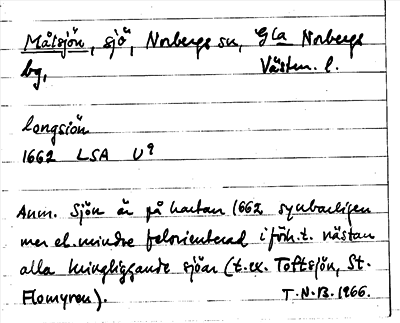 Målsjön, sjö, Norbergs sn, Gla Norbergs
bg, Västm. l.
Longsiön
1662 LSA U9
Anm. Sjön är på kartan 1662 synbarligen
mer el. mindre felorienterad i förh. t. nästan
alla kringliggande sjöar (t. ex. Toftsjön, St.
Flomyren). T.N.B. 1966.